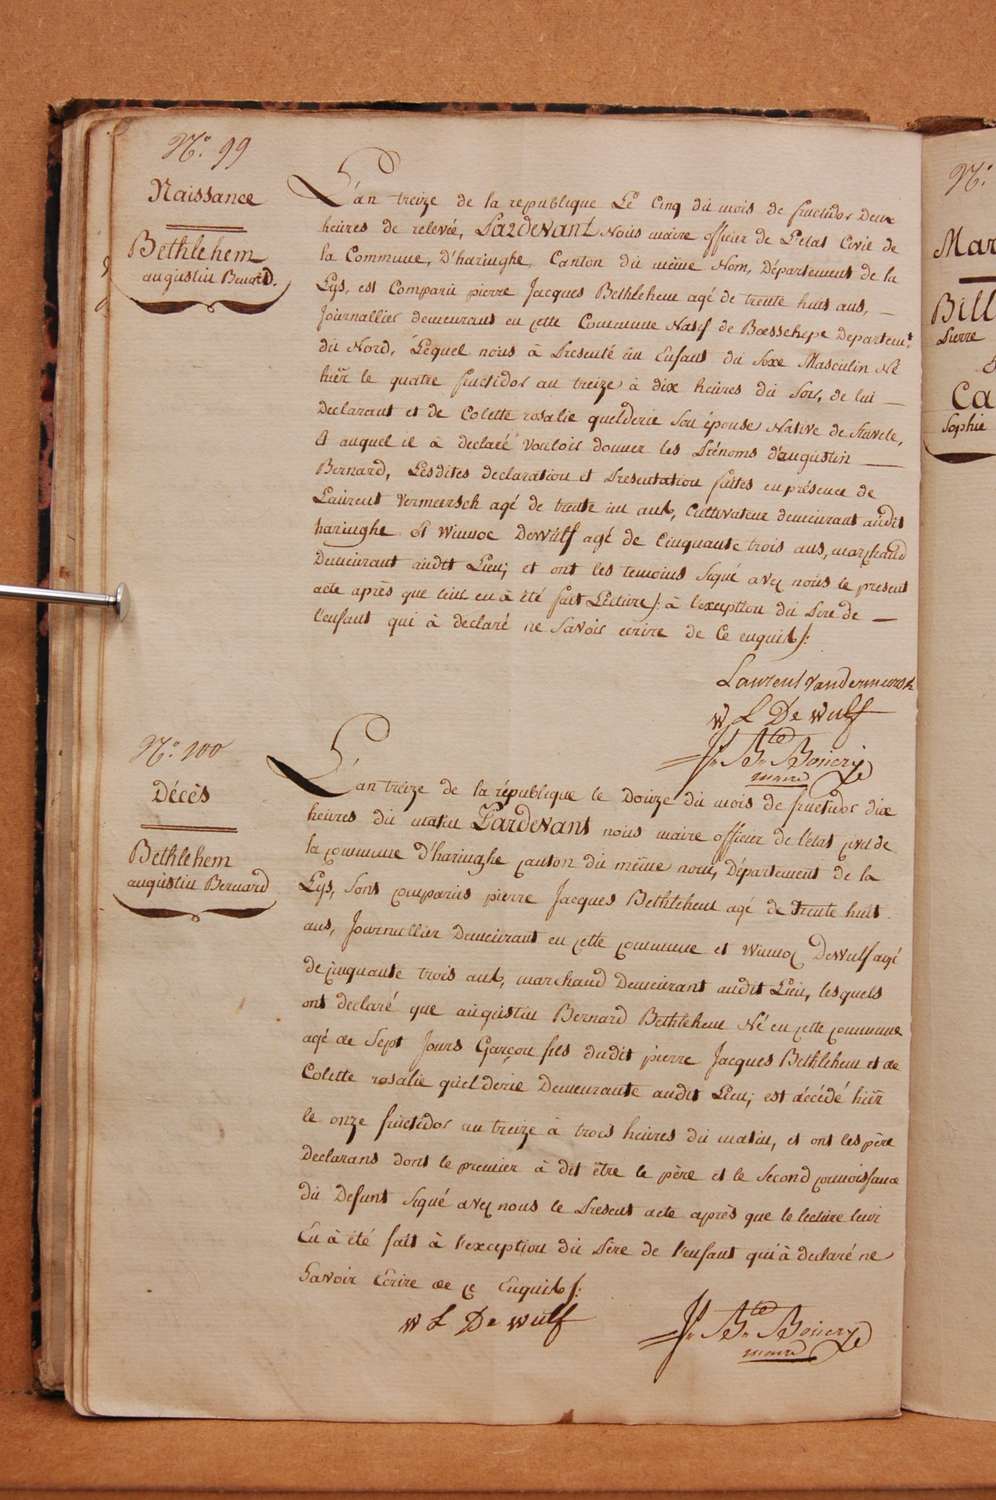 N.° 99
Naissance
Bethlehem
augustin Benard.
L'an treize de la republique Le Cinq du mois de fructidor Deux
heures de relevée, Pardevant Nous maire officier de L'etat Civil de
la Commune, D'haringhe, Canton du même Nom, Département de la
Lys, est Comparu pierre Jacques Bethlehem agé de trente huit ans, —
Journallier demeurant en cette Commune Natif de Boesschepe Departem.t
du Nord, Lequel nous à Presenté un Enfant du Sexe Masculin Né
hier le quatre fructidor an treize à dix heures du Soir, de lui —
Declarant et de Colette rosalie quelderie Son épouse Native de Stavele,
& auquel il à declaré vouloir donner les Prénoms d'augustin —
Bernard, Lesdites declaration et Presentation faites en présence de
Laurent Vermeersch agé de trente un ans, Cultivateur demeurant audit
haringhe & Winnoc DeWulf agé de Cinquante trois ans, marchand
Demeurant audit Lieu; et ont les temoins Signé avec nous le present
acte après que leur en à été fait Lecture/: à l'exception du Pere de —
l'enfant qui à declaré ne Savoir ecrire de Ce enquis/:
Laurent Vandermeersch
W L De Wulf
J. Bte Bonery
maire
N.° 100
Décès
Bethlehem
augustin Bernard
L'an treize de la république le Douze du mois de fructidor dix
heures du matin Pardevant nous maire officier de l'état civil de
la commune d'haringhe canton du même nom, Département de la
Lys, Sont comparus pierre Jacques Bethlehem agé de Trente huit
ans, Journallier Demeurant en cette commune et Winnoc DeWulf agé
de cinquante trois ans, marchand Demeurant audit Lieu, lesquels
ont declaré que augustin Bernard Bethlehem Né en cette commune
agé de Sept Jours Garçon fils dudit pierre Jacques Bethlehem et de
Colette rosalie quelderie Demeurante audit Lieu; est décédé hier
le onze fructidor an treize à trois heures du matin, et ont les père
Declarans dont le premier à dit être le père et le Second connoissance
du Defunt Signé avec nous le Present acte après que le lecture leur
En à été fait à l'exception du Pere de l'enfant qui à declaré ne
Savoir Ecrire de ce Enquis/:
W L De Wulf
J. Bte Bonery
maire
N.°
Mar
Bill
Pierre
Ca
Sophie